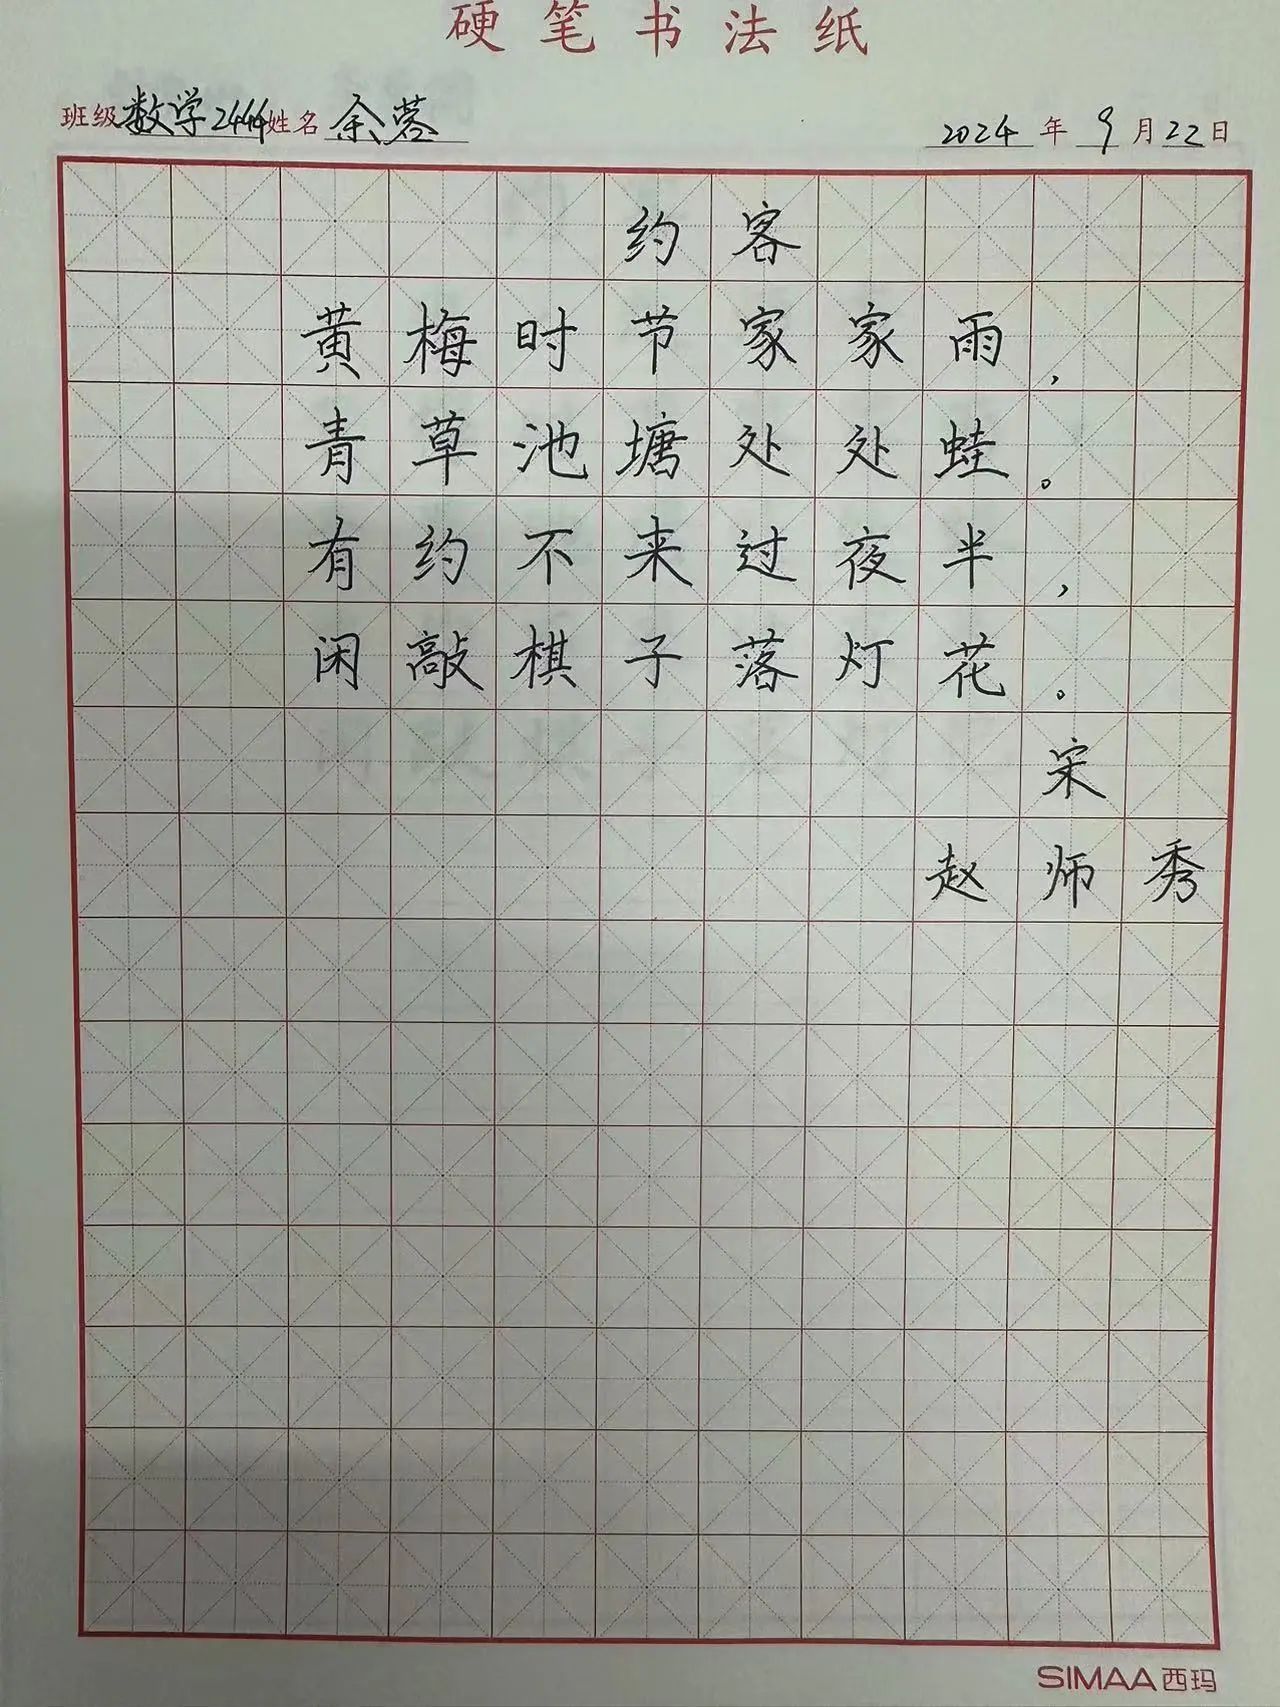 硬笔书法纸
班级 数学2444 姓名 余蓉 2024 年 9 月 22 日
约客
黄梅时节家家雨，
青草池塘处处蛙。
有约不来过夜半，
闲敲棋子落灯花。
宋
赵师秀
SIMAA西玛